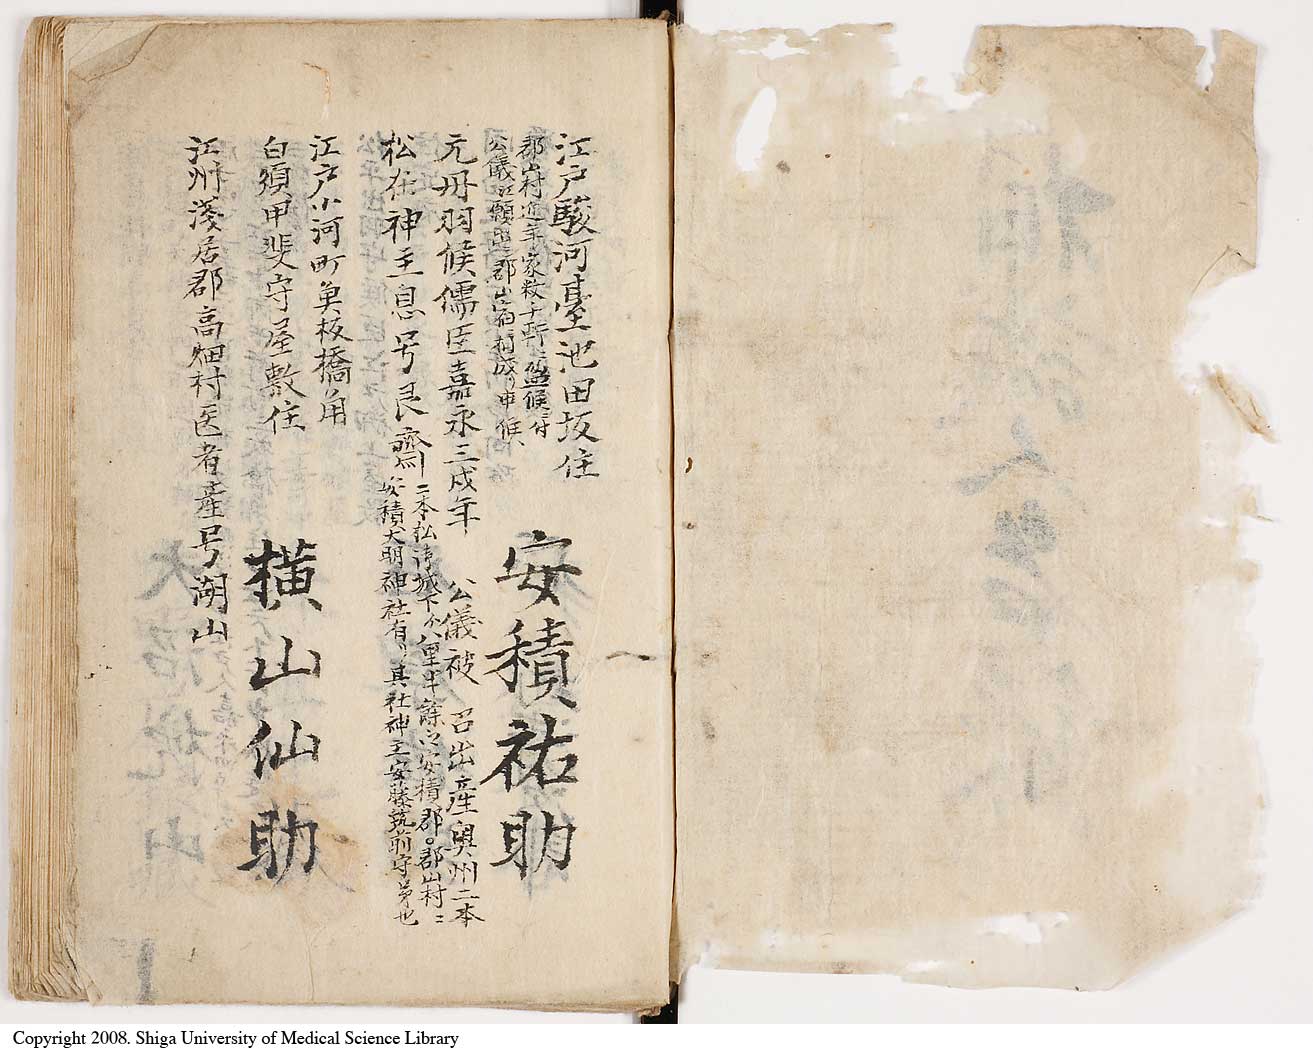 江戸駿河臺池田坂住
安積祐助
郡山村近年家数千軒ニ𛂞候ニ付
公儀江願出郡山宿相成り申候、
元丹羽候儒臣嘉永三戌年 公儀被 召出産奥州二本
松在神主息号艮齋
二本松御城下ゟ八里半餘シ安積郡郡山村ニ
安積大明神社有リ其社神主安藤筑前守弟也
江戸小河町奠板橋角
白須甲斐守屋敷住
横山仙助
江州淺居郡高畑村医者産号湖山
Copyright 2008. Shiga University of Medical Science Library